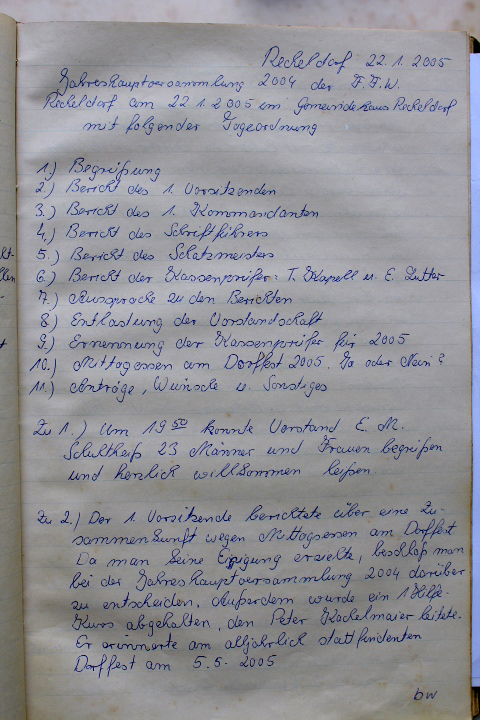 Reckeldorf 22.1.2005
Jahreshauptversammlung 2004 der F.F.W.
Reckeldorf am 22.1.2005 im Gemeindehaus Reckeldorf
mit folgender Tagesordnung
1.) Begrüßung
2.) Bericht des 1. Vorsitzenden
3.) Bericht des 1. Kommandanten
4.) Bericht des Schriftführers
5.) Bericht des Schatzmeisters
6.) Bericht der Kassenprüfer: T. Kapell u. E. Zutter
7.) Aussprache zu den Berichten
8.) Entlastung der Vorstandschaft
9.) Ernennung der Kassenprüfer für 2005
10.) Mittagessen am Dorffest 2005. Ja oder Nein?
11.) Anträge, Wünsche u. Sonstiges
Zu 1.) Um 19 50 konnte Vorstand E. M.
Schultheiß 23 Männer und Frauen begrüßen
und herzlich willkommen heißen.
Zu 2.) Der 1. Vorsitzende berichtete über eine Zu-
sammenkunft wegen Mittagsessen am Dorffest
Da man keine Einigung erzielte, beschloß man
bei der Jahreshauptversammlung 2004 darüber
zu entscheiden. Außerdem wurde ein 1 Hilfe-
Kurs abgehalten, den Peter Kachelmaier leitete.
Er erinnerte am alljährlich stattfindenten
Dorffest am 5.5.2005
bw